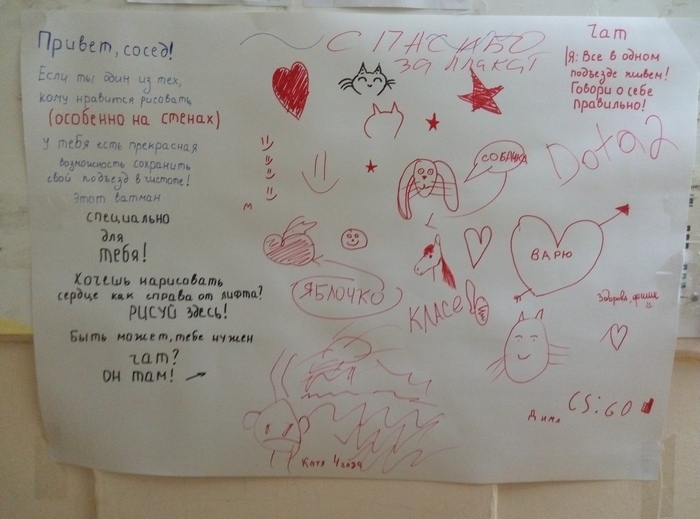 Привет, сосед!
Если ты один из тех,
кому нравится рисовать
(особенно на стенах)
У тебя есть прекрасная
возможность сохранить
свой подъезд в чистоте!
Этот ватман
специально
для
тебя!
Хочешь нарисовать
сердце как справа от лифта?
Рисуй здесь!
Быть может, тебе нужен
чат?
он там!
СПАСИБО
ЗА ПЛАКАТ
Чат
Я: Все в одном
подъезде живем!
Говори о себе
правильно!
Dota2
СОБАЧКА
ВАРЮ
ЯБЛОЧКО
КЛАСС
Дима
CS:GO
Катя